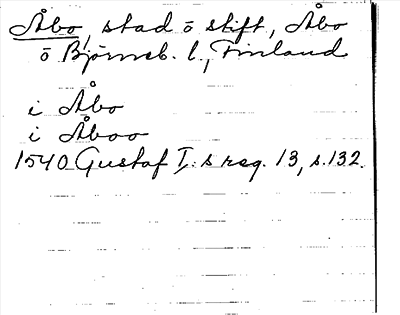 Åbo, stad o stift, Åbo
o Björneb. l., Finland
i Åbo
i Åboo
1540 Gustaf I:s reg. 13, s.132.